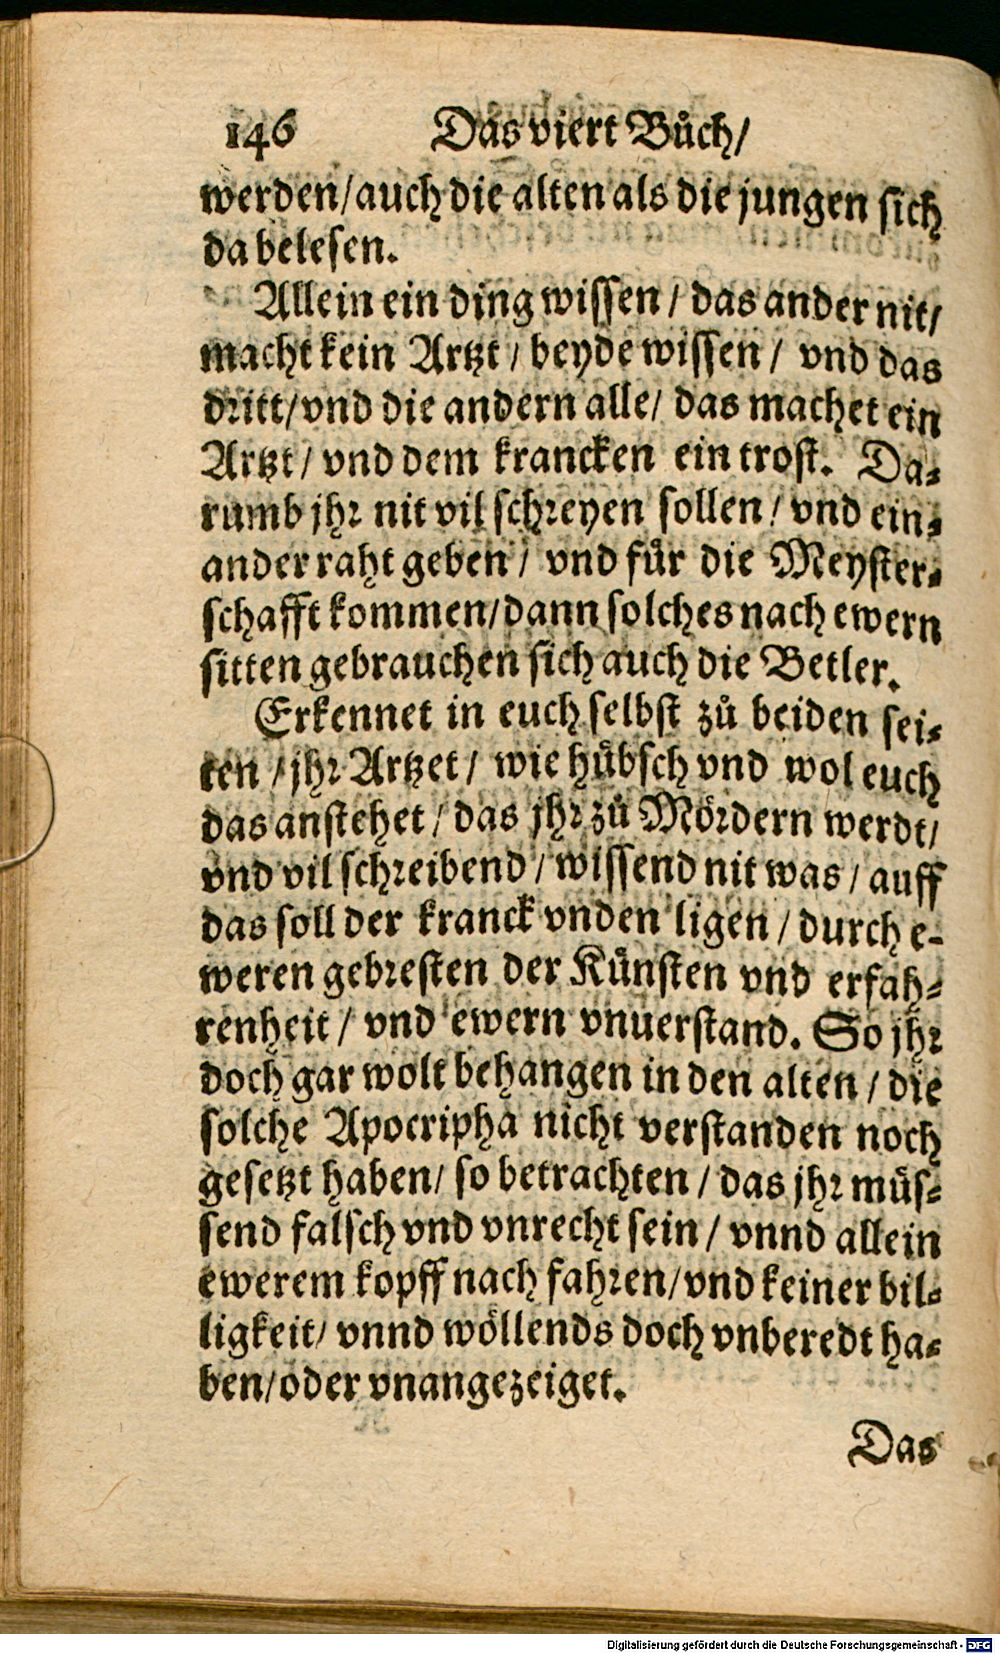 146 Das viert Bůch/
werden/auch die alten als die jungen sich
da belesen.
Allein ein ding wissen / das ander nit/
macht kein Artzt / beyde wissen / vnd das
dritt/vnd die andern alle/ das machet ein
Artzt / vnd dem krancken ein trost. Da-
rumb jhr nit vil schreyen sollen / vnd ein-
ander raht geben / vnd für die Meyster-
schafft kommen/dann solches nach ewern
sitten gebrauchen sich auch die Betler.
Erkennet in euch selbst zů beiden sei-
ten / jhr Artzet / wie hübsch vnd wol euch
das anstehet / das jhr zů Mördern werdt/
vnd vil schreibend / wissend nit was / auff
das soll der kranck vnden ligen / durch e-
weren gebresten der Künsten vnd erfah-
renheit / vnd ewern vnuerstand. So jhr
doch gar wolt behangen in den alten / die
solche Apocripha nicht verstanden noch
gesetzt haben/ so betrachten / das jhr müs-
send falsch vnd vnrecht sein / vnnd allein
ewerem kopff nach fahren/vnd keiner bil-
ligkeit/ vnnd wöllends doch vnberedt ha-
ben/oder vnangezeiget.
Das
Digitalisierung gefördert durch die Deutsche Forschungsgemeinschaft - DFG